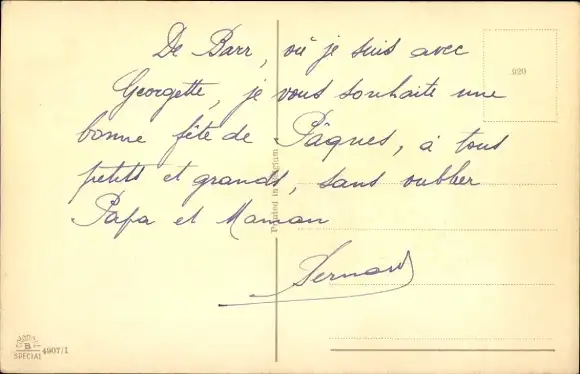 De Barr, où je suis avec
Georgette, je vous souhaite une
bonne fête de Pâques, à tous
petits et grands, sans oublier
Papa et Maman
Bernard
920
Printed in Belgium
B
SPECIAL 4907/1